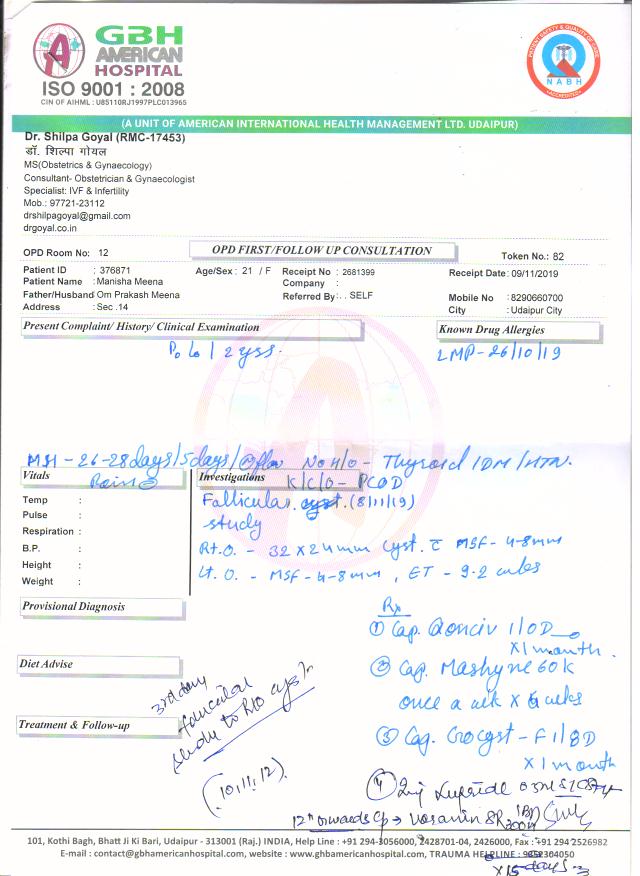 GBH
AMERICAN
HOSPITAL
ISO 9001 : 2008
CIN OF AIHML : U85110RJ1997PLC013965
PATIENT SAFETY & QUALITY OF CARE
NABH
ACCREDITED
(A UNIT OF AMERICAN INTERNATIONAL HEALTH MANAGEMENT LTD. UDAIPUR)
Dr. Shilpa Goyal (RMC-17453)
डॉ. शिल्पा गोयल
MS(Obstetrics & Gynaecology)
Consultant- Obstetrician & Gynaecologist
Specialist: IVF & Infertility
Mob.: 97721-23112
drshilpagoyal@gmail.com
drgoyal.co.in
OPD Room No: 12
OPD FIRST/FOLLOW UP CONSULTATION
Token No.: 82
Patient ID : 376871 Age/Sex : 21 / F Receipt No : 2681399 Receipt Date: 09/11/2019
Patient Name : Manisha Meena Company :
Father/Husband Om Prakash Meena Referred By : . . SELF Mobile No : 8290660700
Address : Sec .14 City : Udaipur City
Present Complaint/ History/ Clinical Examination
Known Drug Allergies
2 yrs.
LMP-26/10/19
MH-26-28days/5days/ flow No H/O- Thyroid/DM/HTN.
Vitals
Pain
Investigations
K/C/O-PCOD
Temp :
Pulse :
Respiration :
B.P. :
Height :
Weight :
Follicular (8/11/19)
study
Rt.O. - 32 x 24mm cyst. c MSF- 4-8mm
Lt. O. - MSF-4-8mm, ET - 9.2
Provisional Diagnosis
Rx
① Cap. 1 OD
x 1 month.
Diet Advise
② Cap. 60K
once a wk x 6 wks
3rd day
follicular
study to R/O cyst
Treatment & Follow-up
③ Cap. - F 1 BD
x 1 month
(10,11,12).
④ Inj
12th onwards
x 15 days
101, Kothi Bagh, Bhatt Ji Ki Bari, Udaipur - 313001 (Raj.) INDIA, Help Line : +91 294-3056000, 2428701-04, 2426000, Fax : +91 294 2526982
E-mail : contact@gbhamericanhospital.com, website : www.gbhamericanhospital.com, TRAUMA HELPLINE : 9352304050